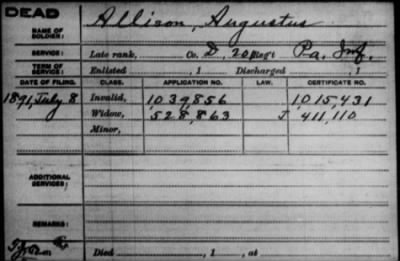 DEAD
NAME OF SOLDIER: Allison, Augustus
SERVICE: Late rank, Co. D, 201 Reg't Pa. Inf.
TERM OF SERVICE: Enlisted , 1 Discharged , 1
DATE OF FILING. CLASS. APPLICATION NO. LAW. CERTIFICATE NO.
1891, July 8 Invalid, 1039,856 1,015,431
Widow, 528,863 J 411,110
Minor,
ADDITIONAL SERVICES:
REMARKS:
Died , 1 , at